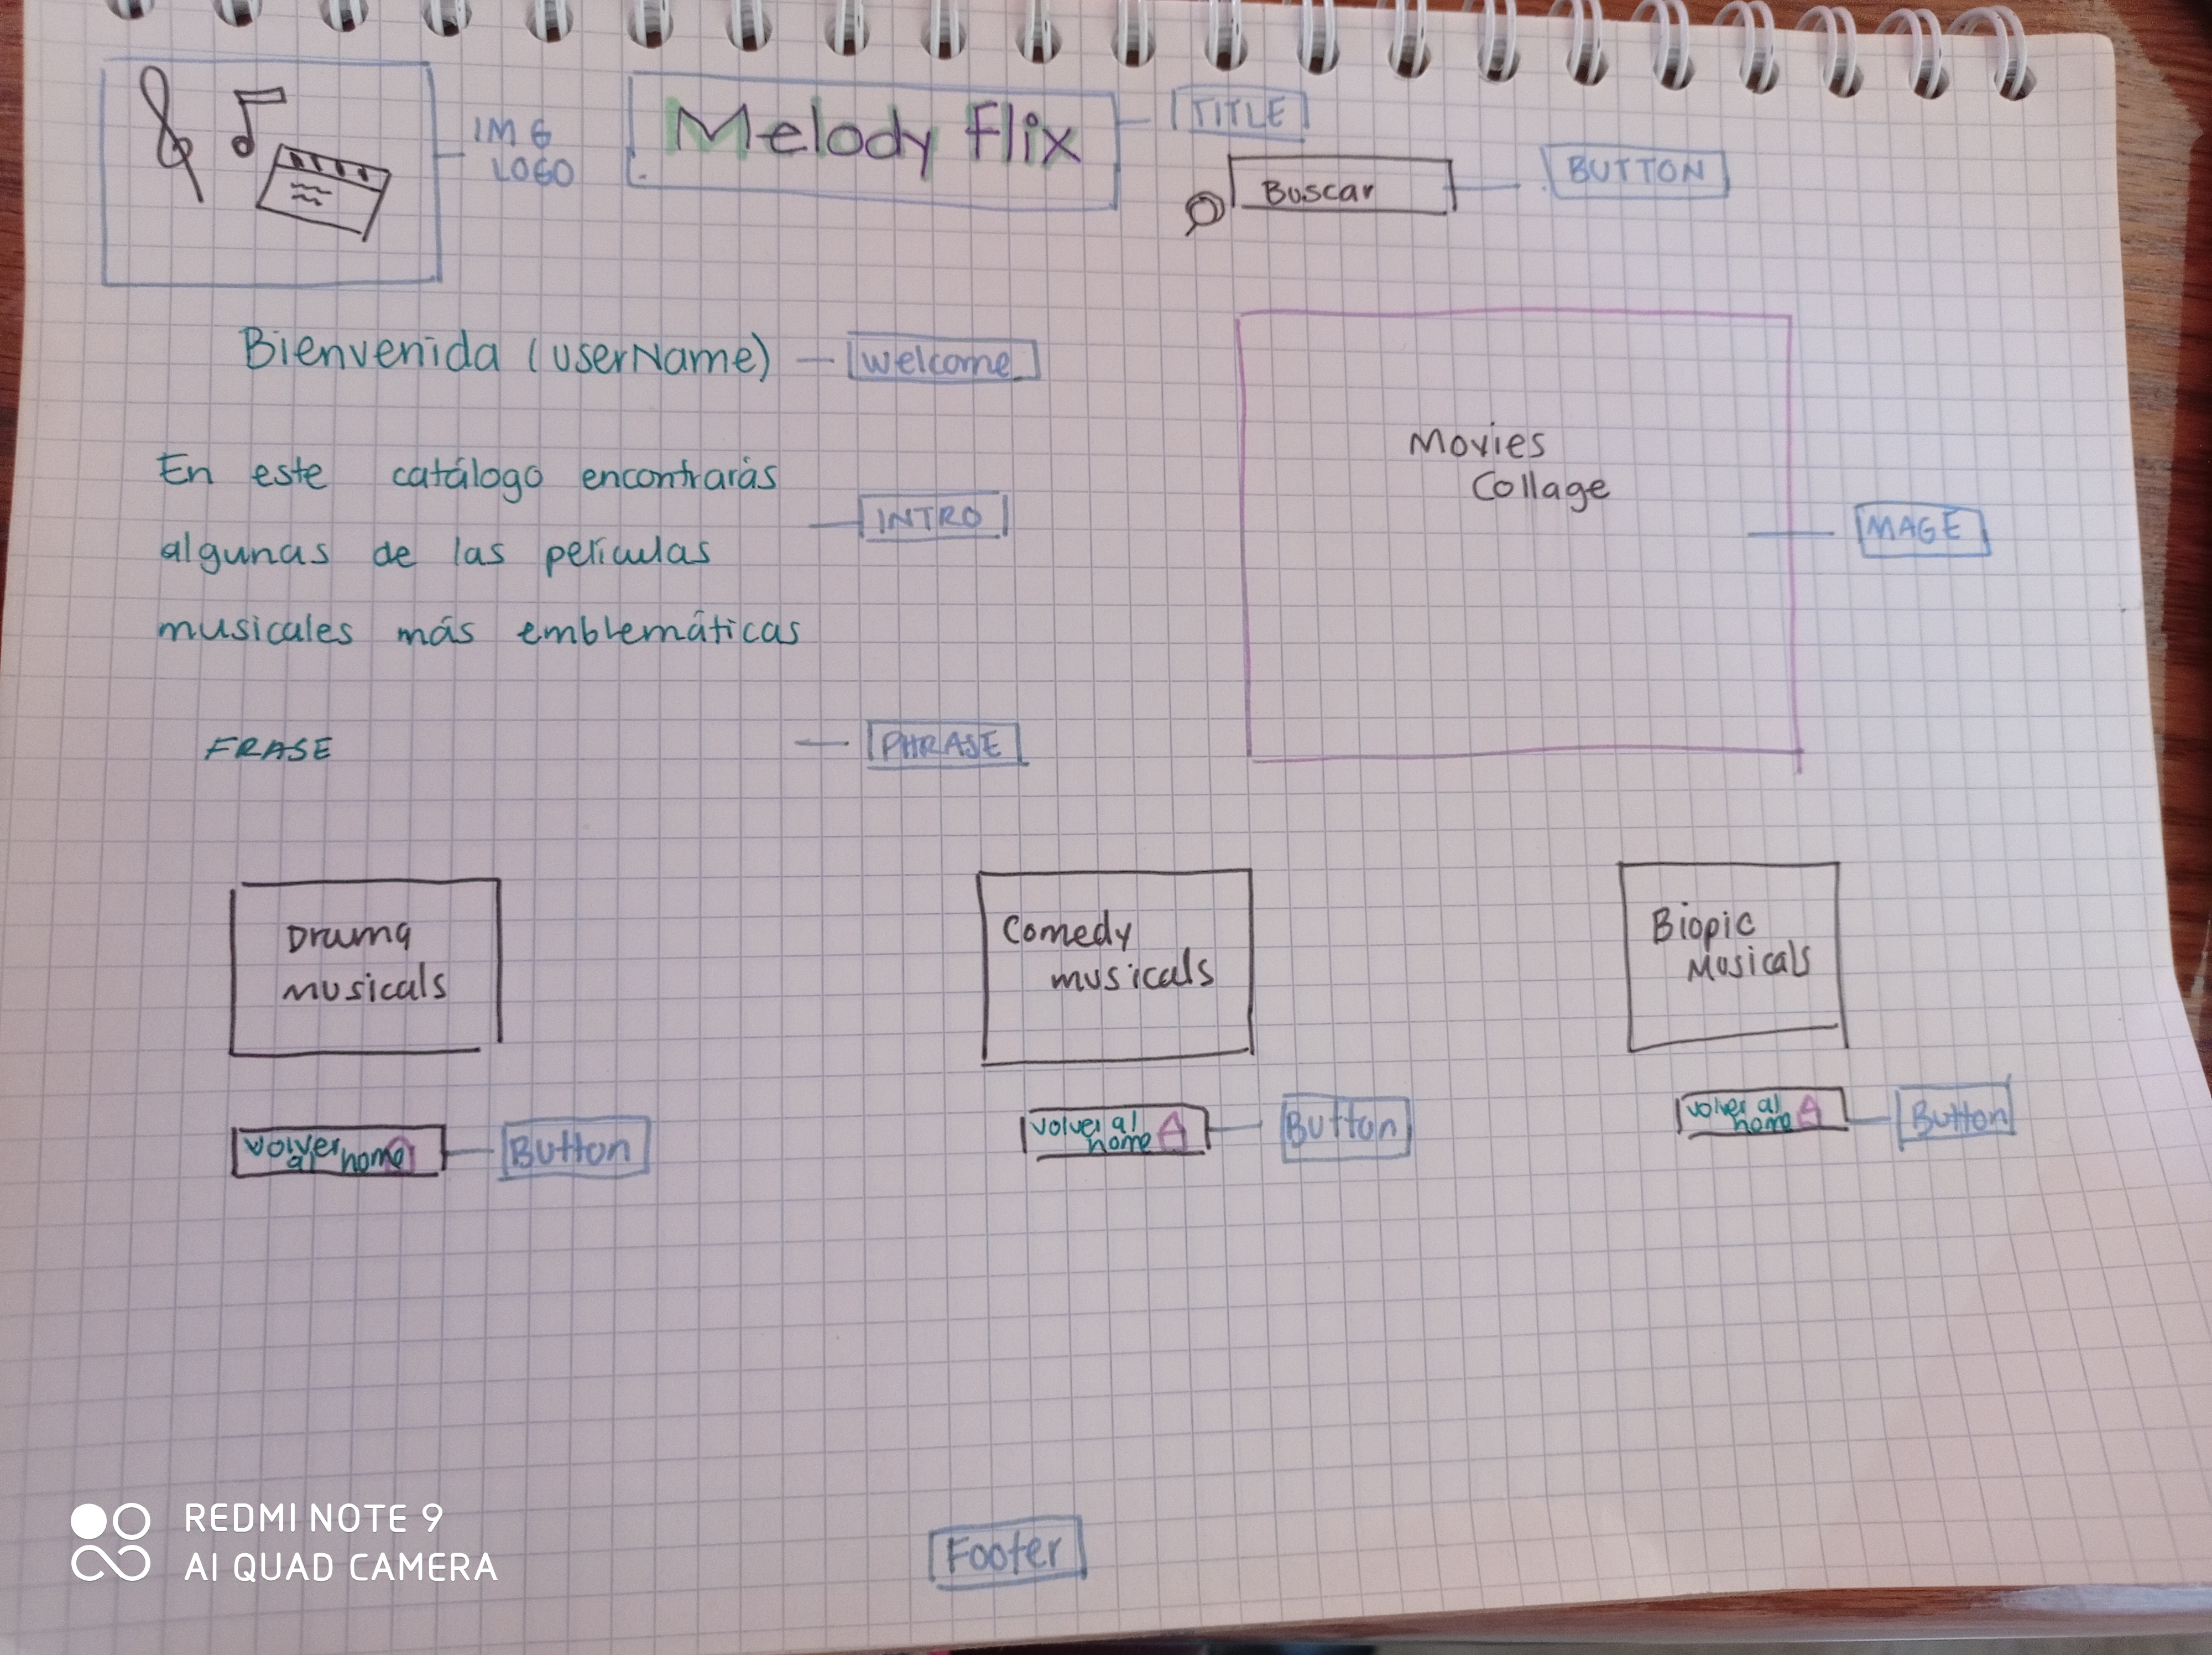 IMG
LOGO
Melody Flix
TITLE
Buscar
BUTTON
Bienvenida (userName)
Welcome
En este catálogo encontrarás
algunas de las películas
musicales más emblemáticas
INTRO
Movies
Collage
IMAGE
FRASE
PHRASE
Drama
musicals
Comedy
musicals
Biopic
Musicals
volver
al home
Button
volver al
home
Button
volver al
home
Button
Footer
REDMI NOTE 9
AI QUAD CAMERA